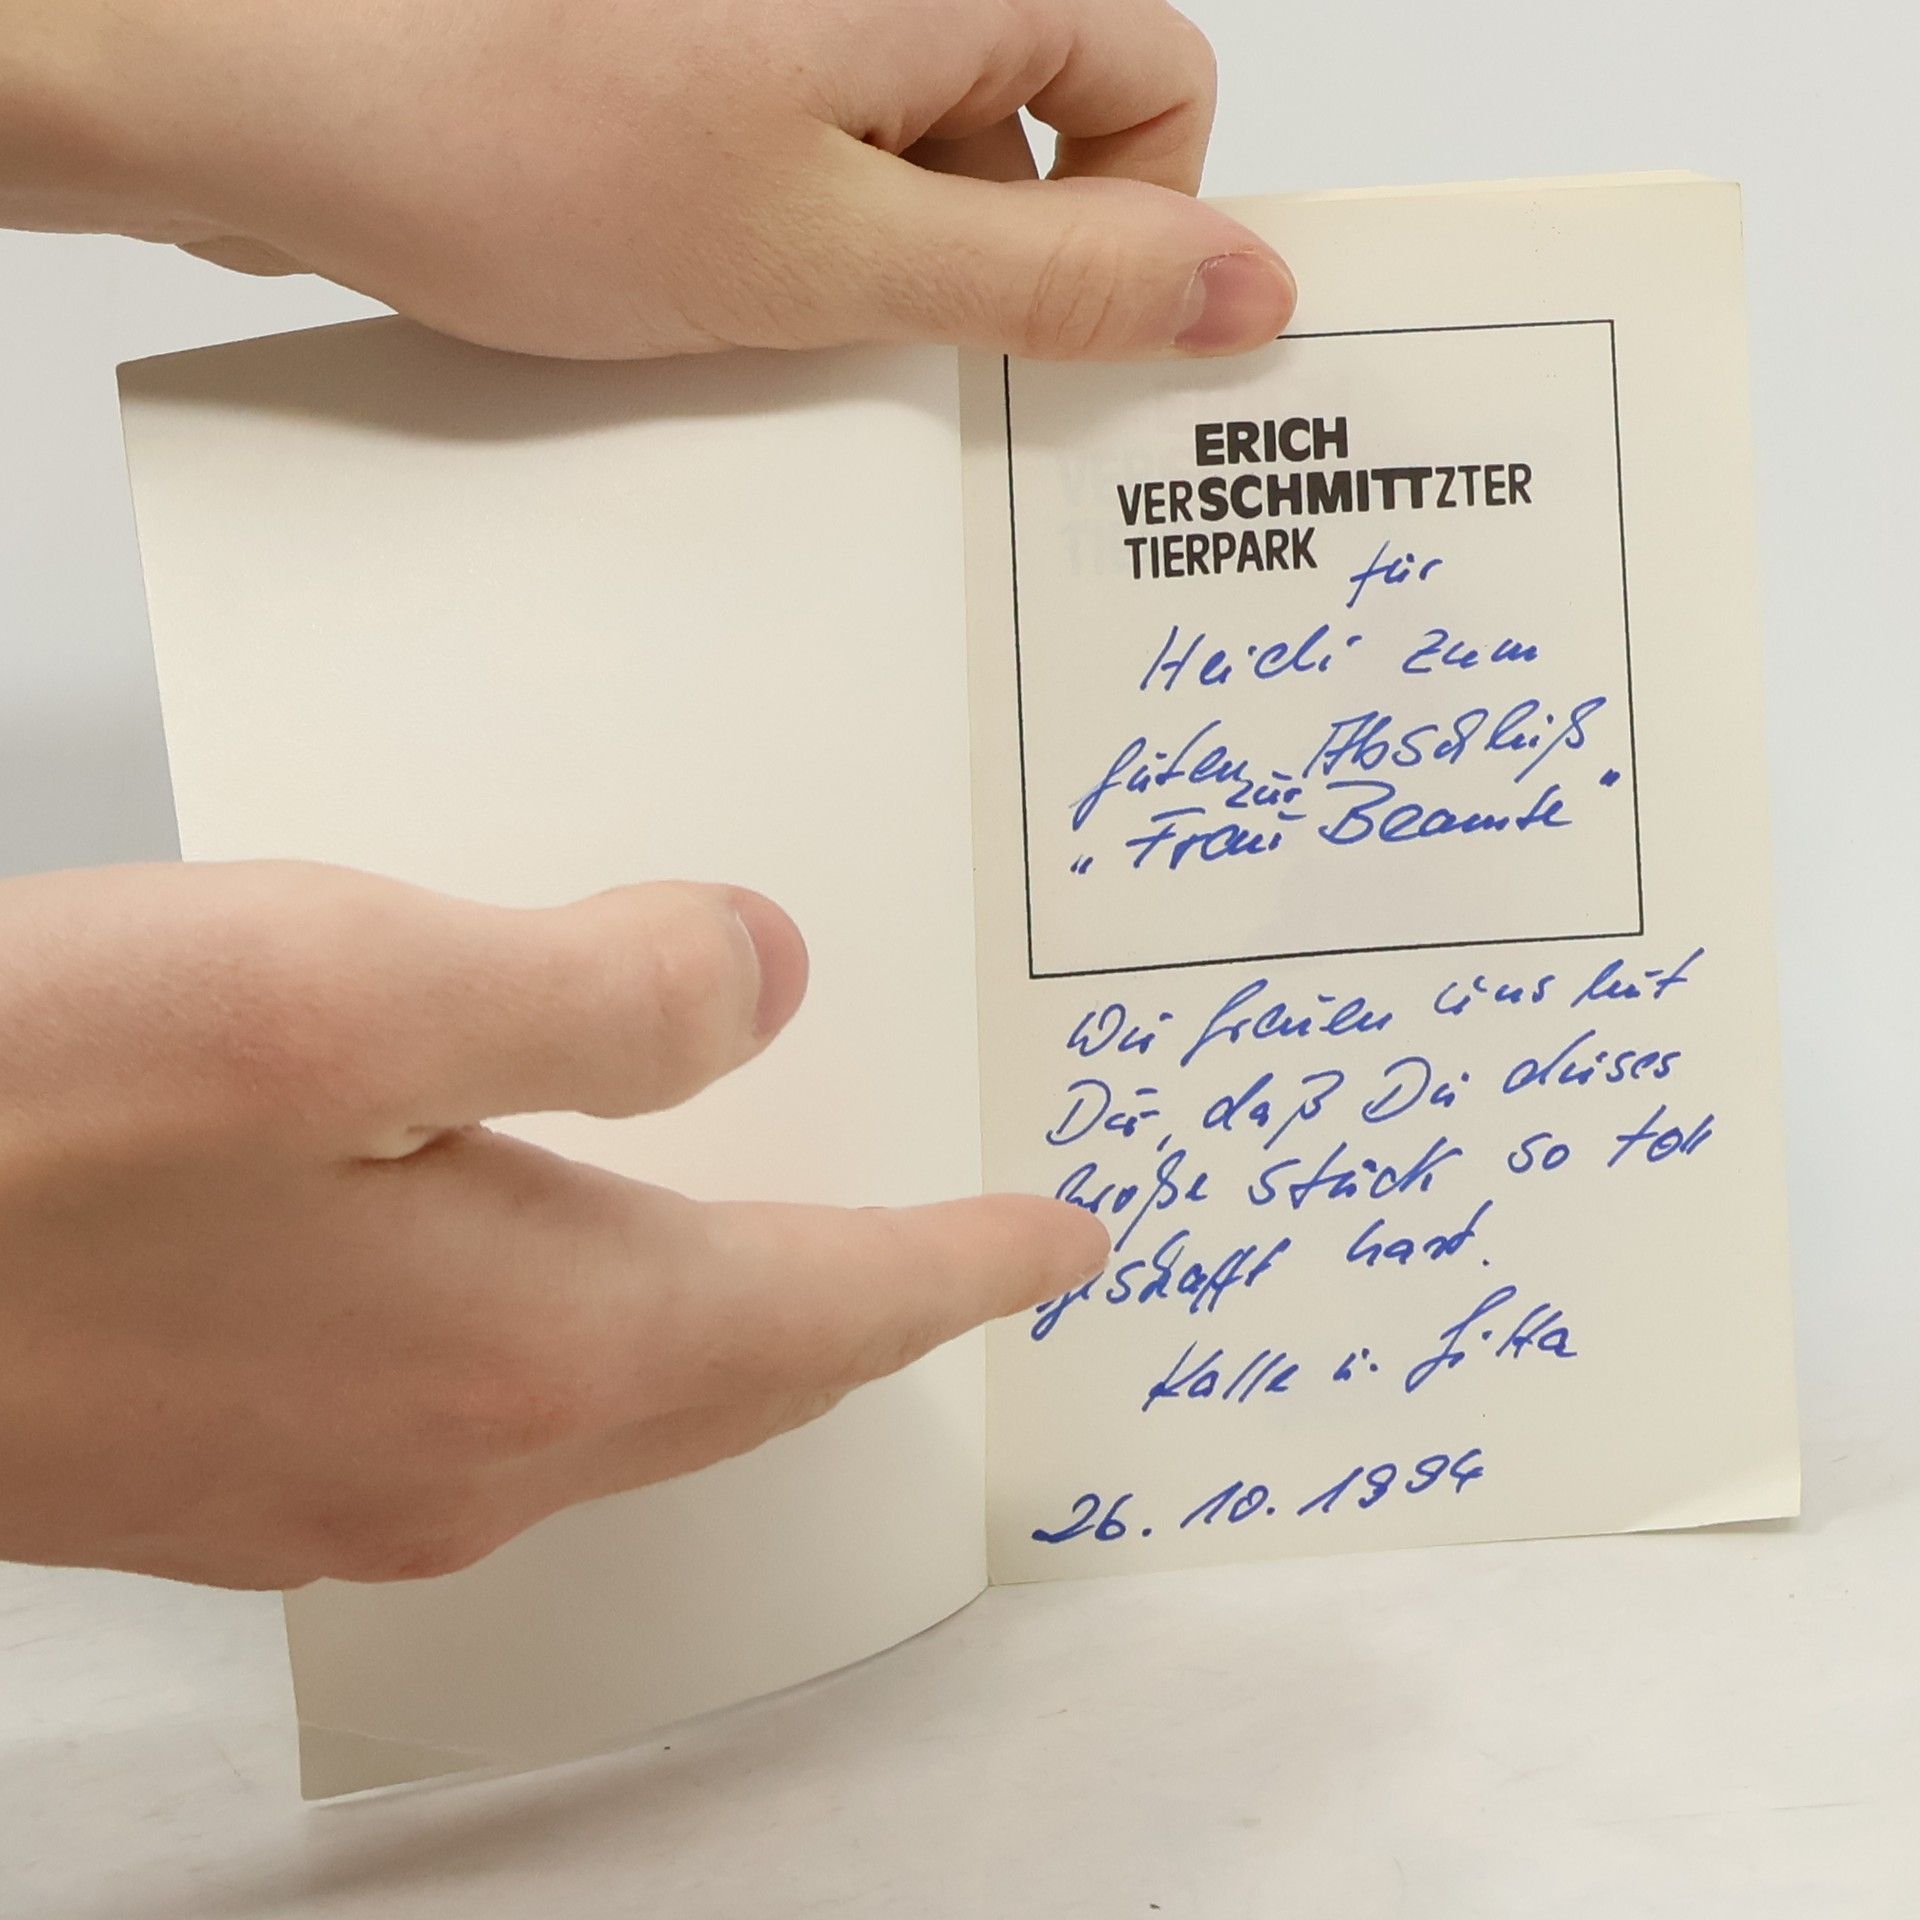 ERICH
VERSCHMITTZTER
TIERPARK
für
Heidi zum
guten Abschluß
zur
„Frau Beamte"
Wir freuen uns mit
Dir, daß Du dieses
große Stück so toll
geschafft hast.
Kalle u. Gitta
26.10.1994